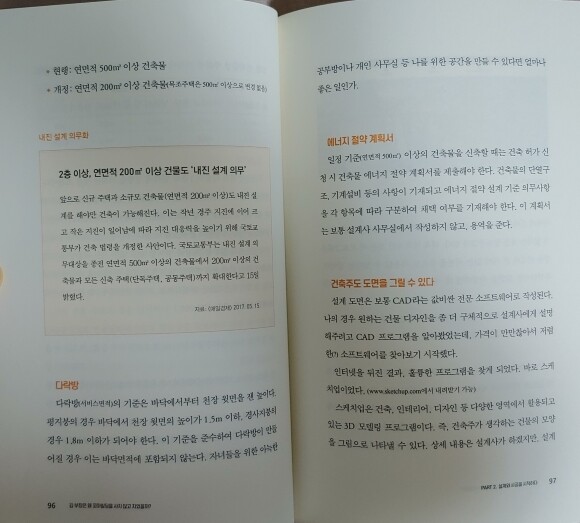 현행: 연면적 500㎡ 이상 건축물
개정: 연면적 200㎡ 이상 건축물(목조주택은 500㎡ 이상으로 변경 없음)
내진 설계 의무화
2층 이상, 연면적 200㎡ 이상 건물도 '내진 설계 의무'
앞으로 신규 주택과 소규모 건축물(연면적 200㎡ 이상)도 내진 설
계를 해야만 건축이 가능해진다. 이는 작년 경주 지진에 이어 크
고 작은 지진이 일어남에 따라 지진 대응력을 높이기 위해 국토교
통부가 건축 법령을 개정한 사안이다. 국토교통부는 내진 설계 의
무대상을 종전 연면적 500㎡ 이상의 건축물에서 200㎡ 이상의 건
축물과 모든 신축 주택(단독주택, 공동주택)까지 확대한다고 15일
밝혔다.
자료: 〈매일경제〉 2017.05.15.
다락방
다락방(서비스면적)의 기준은 바닥에서부터 천장 윗면을 잰 높이다.
평지붕의 경우 바닥에서 천장 윗면의 높이가 1.5m 이하, 경사지붕의
경우 1.8m 이하가 되어야 한다. 이 기준을 준수하여 다락방이 만들
어질 경우 이는 바닥면적에 포함되지 않는다. 자녀들을 위한 아늑한
96 김 부장은 왜 꼬마빌딩을 사지 않고 지었을까?
공부방이나 개인 사무실 등 나를 위한 공간을 만들 수 있다면 얼마나
좋은 일인가.
에너지 절약 계획서
일정 기준(연면적 500㎡) 이상의 건축물을 신축할 때는 건축 허가 신
청 시 건축물 에너지 절약 계획서를 제출해야 한다. 건축물의 단열구
조, 기계설비 등의 사항이 기재되고 에너지 절약 설계 기준 의무사항
을 각 항목에 따라 구분하여 채택 여부를 기재해야 한다. 이 계획서
는 보통 설계사 사무실에서 작성하지 않고, 용역을 준다.
건축주도 도면을 그릴 수 있다
설계 도면은 보통 CAD라는 값비싼 전문 소프트웨어로 작성된다.
나의 경우 원하는 건물 디자인을 좀 더 구체적으로 설계사에게 설명
해주려고 CAD 프로그램을 알아봤었는데, 가격이 만만찮아서 저렴
한(?) 소프트웨어를 찾아보기 시작했다.
인터넷을 뒤진 결과, 훌륭한 프로그램을 찾게 되었다. 바로 스케
치업이었다. (www.sketchup.com에서 내려받기 가능)
스케치업은 건축, 인테리어, 디자인 등 다양한 영역에서 활용되고
있는 3D 모델링 프로그램이다. 즉, 건축주가 생각하는 건물의 모양
을 그림으로 나타낼 수 있다. 상세 내용은 설계사가 하겠지만, 설계
PART 2. 97